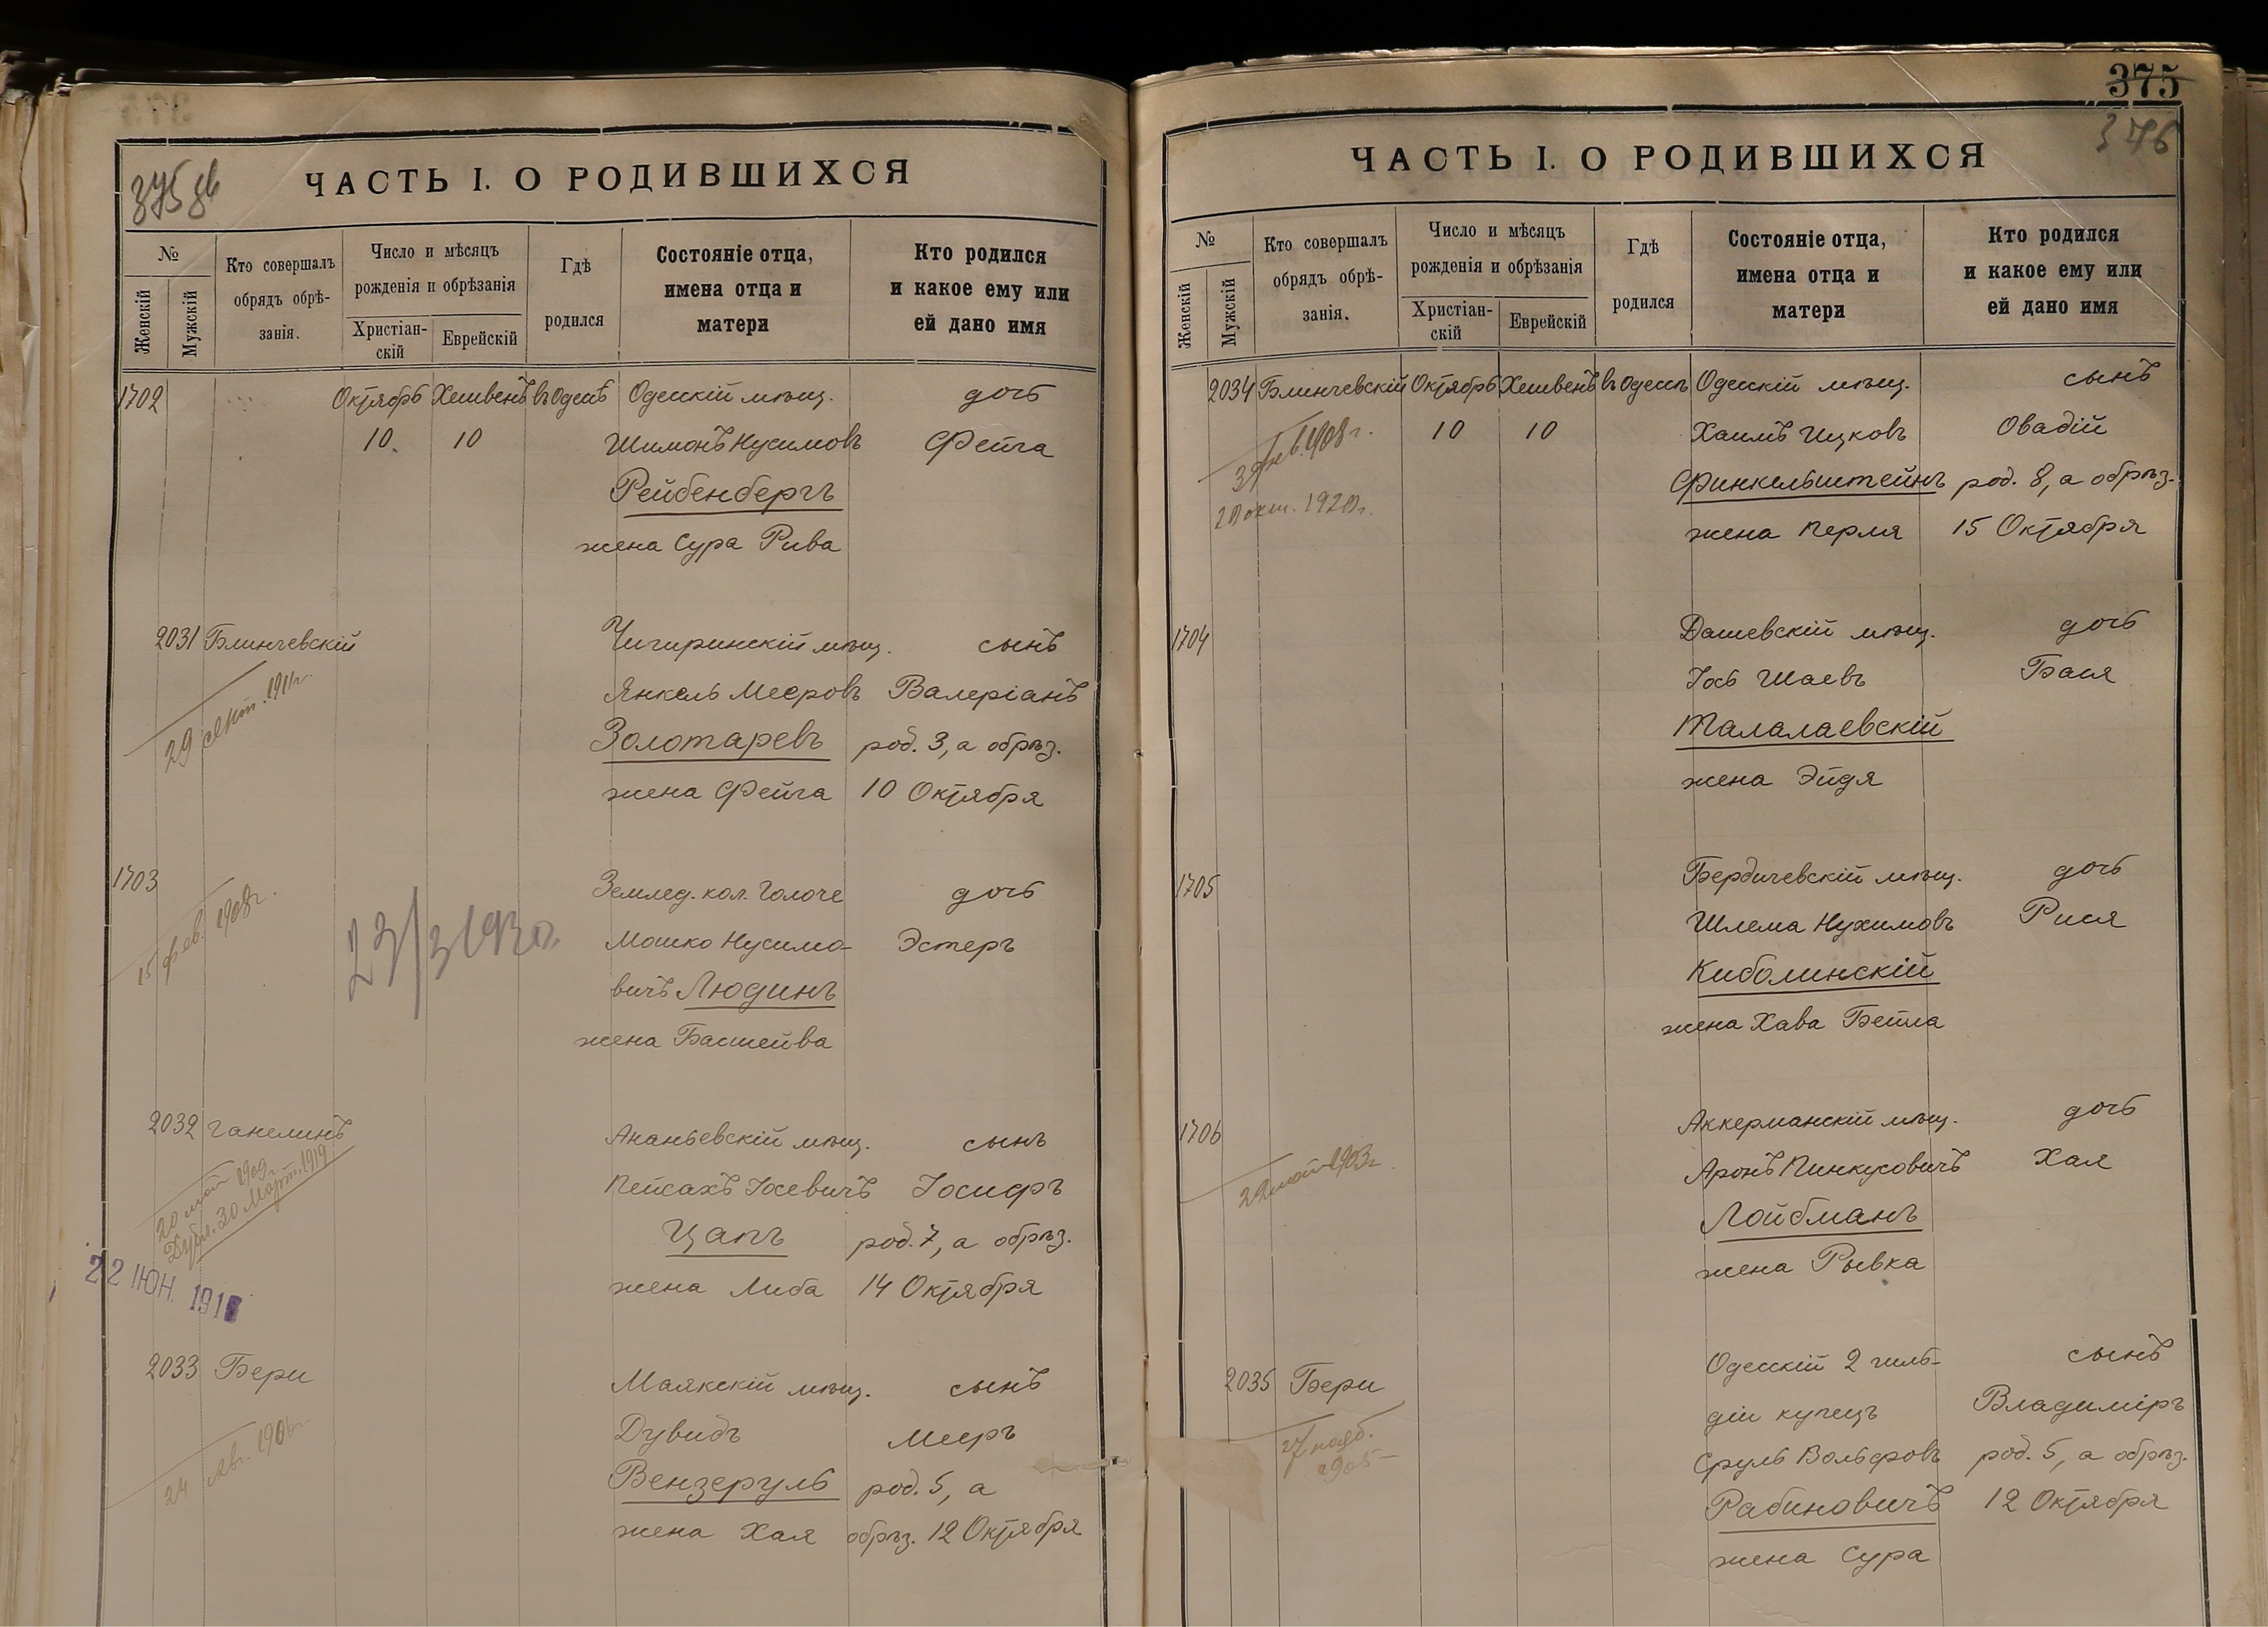 375 об
ЧАСТЬ I. О РОДИВШИХСЯ
№
Женскій
Мужскій
Кто совершалъ
обрядъ обрѣ-
занія.
Число и мѣсяцъ
рожденія и обрѣзанія
Христіан-
скій
Еврейскій
Гдѣ
родился
Состояніе отца,
имена отца и
матери
Кто родился
и какое ему или
ей дано имя
1702 Октябрь Хешвенъ въ Одессѣ Одесскій мѣщ. дочь
10. 10 Шимонъ Нусимовъ Фейга
Рейбенбергъ
жена Сура Рива
2031 Блинчевскій Чигиринскій мѣщ. сынъ
29 сент. 1911г. Янкель Мееровъ Валеріанъ
Золотаревъ род. 3, а обрѣз.
жена Фейга 10 Октября
1703 Землед. кол. Голоче дочь
15 фев. 1908г. 23/3 193 Мошко Нусимо- Эстеръ
вичъ Людинъ
жена Басшейва
2032 Ганелинъ Ананьевскій мѣщ. сынъ
20 май 1909г. Пейсахъ Іосевичъ Іосифъ
Дубл. 30 Март. 1919 Цапъ род. 7, а обрѣз.
22 ИЮН. 191 жена Либа 14 Октября
2033 Бери Маякскій мѣщ. сынъ
24 Авг. 1906г. Дувидъ Мееръ
Вензеруль род. 5, а
жена Хая обрѣз. 12 Октября
375
376
ЧАСТЬ I. О РОДИВШИХСЯ
№
Женскій
Мужскій
Кто совершалъ
обрядъ обрѣ-
занія.
Число и мѣсяцъ
рожденія и обрѣзанія
Христіан-
скій
Еврейскій
Гдѣ
родился
Состояніе отца,
имена отца и
матери
Кто родился
и какое ему или
ей дано имя
2034 Блинчевскій Октябрь Хешвенъ въ Одессѣ Одесскій мѣщ. сынъ
3 фев. 1908 г. 10 10 Хаимъ Ицковъ Овадій
20 окт. 1920г. Финкельштейнъ род. 8, а обрѣз.
жена Перля 15 Октября
1704 Дашевскій мѣщ. дочь
Іось Шаевъ Бася
Талалаевскій
жена Эйдя
1705 Бердичевскій мѣщ. дочь
Шлема Нухимовъ Рися
Киболинскій
жена Хава Бейла
1706 Аккерманскій мѣщ. дочь
22 май 1903г. Аронъ Пинкусовичъ Хая
Лойбманъ
жена Рывка
2035 Бери Одесскій 2 гиль- сынъ
27 нояб. 1905 діи купецъ Владиміръ
Сруль Вольфовъ род. 5, а обрѣз.
Рабиновичъ 12 Октября
жена Сура